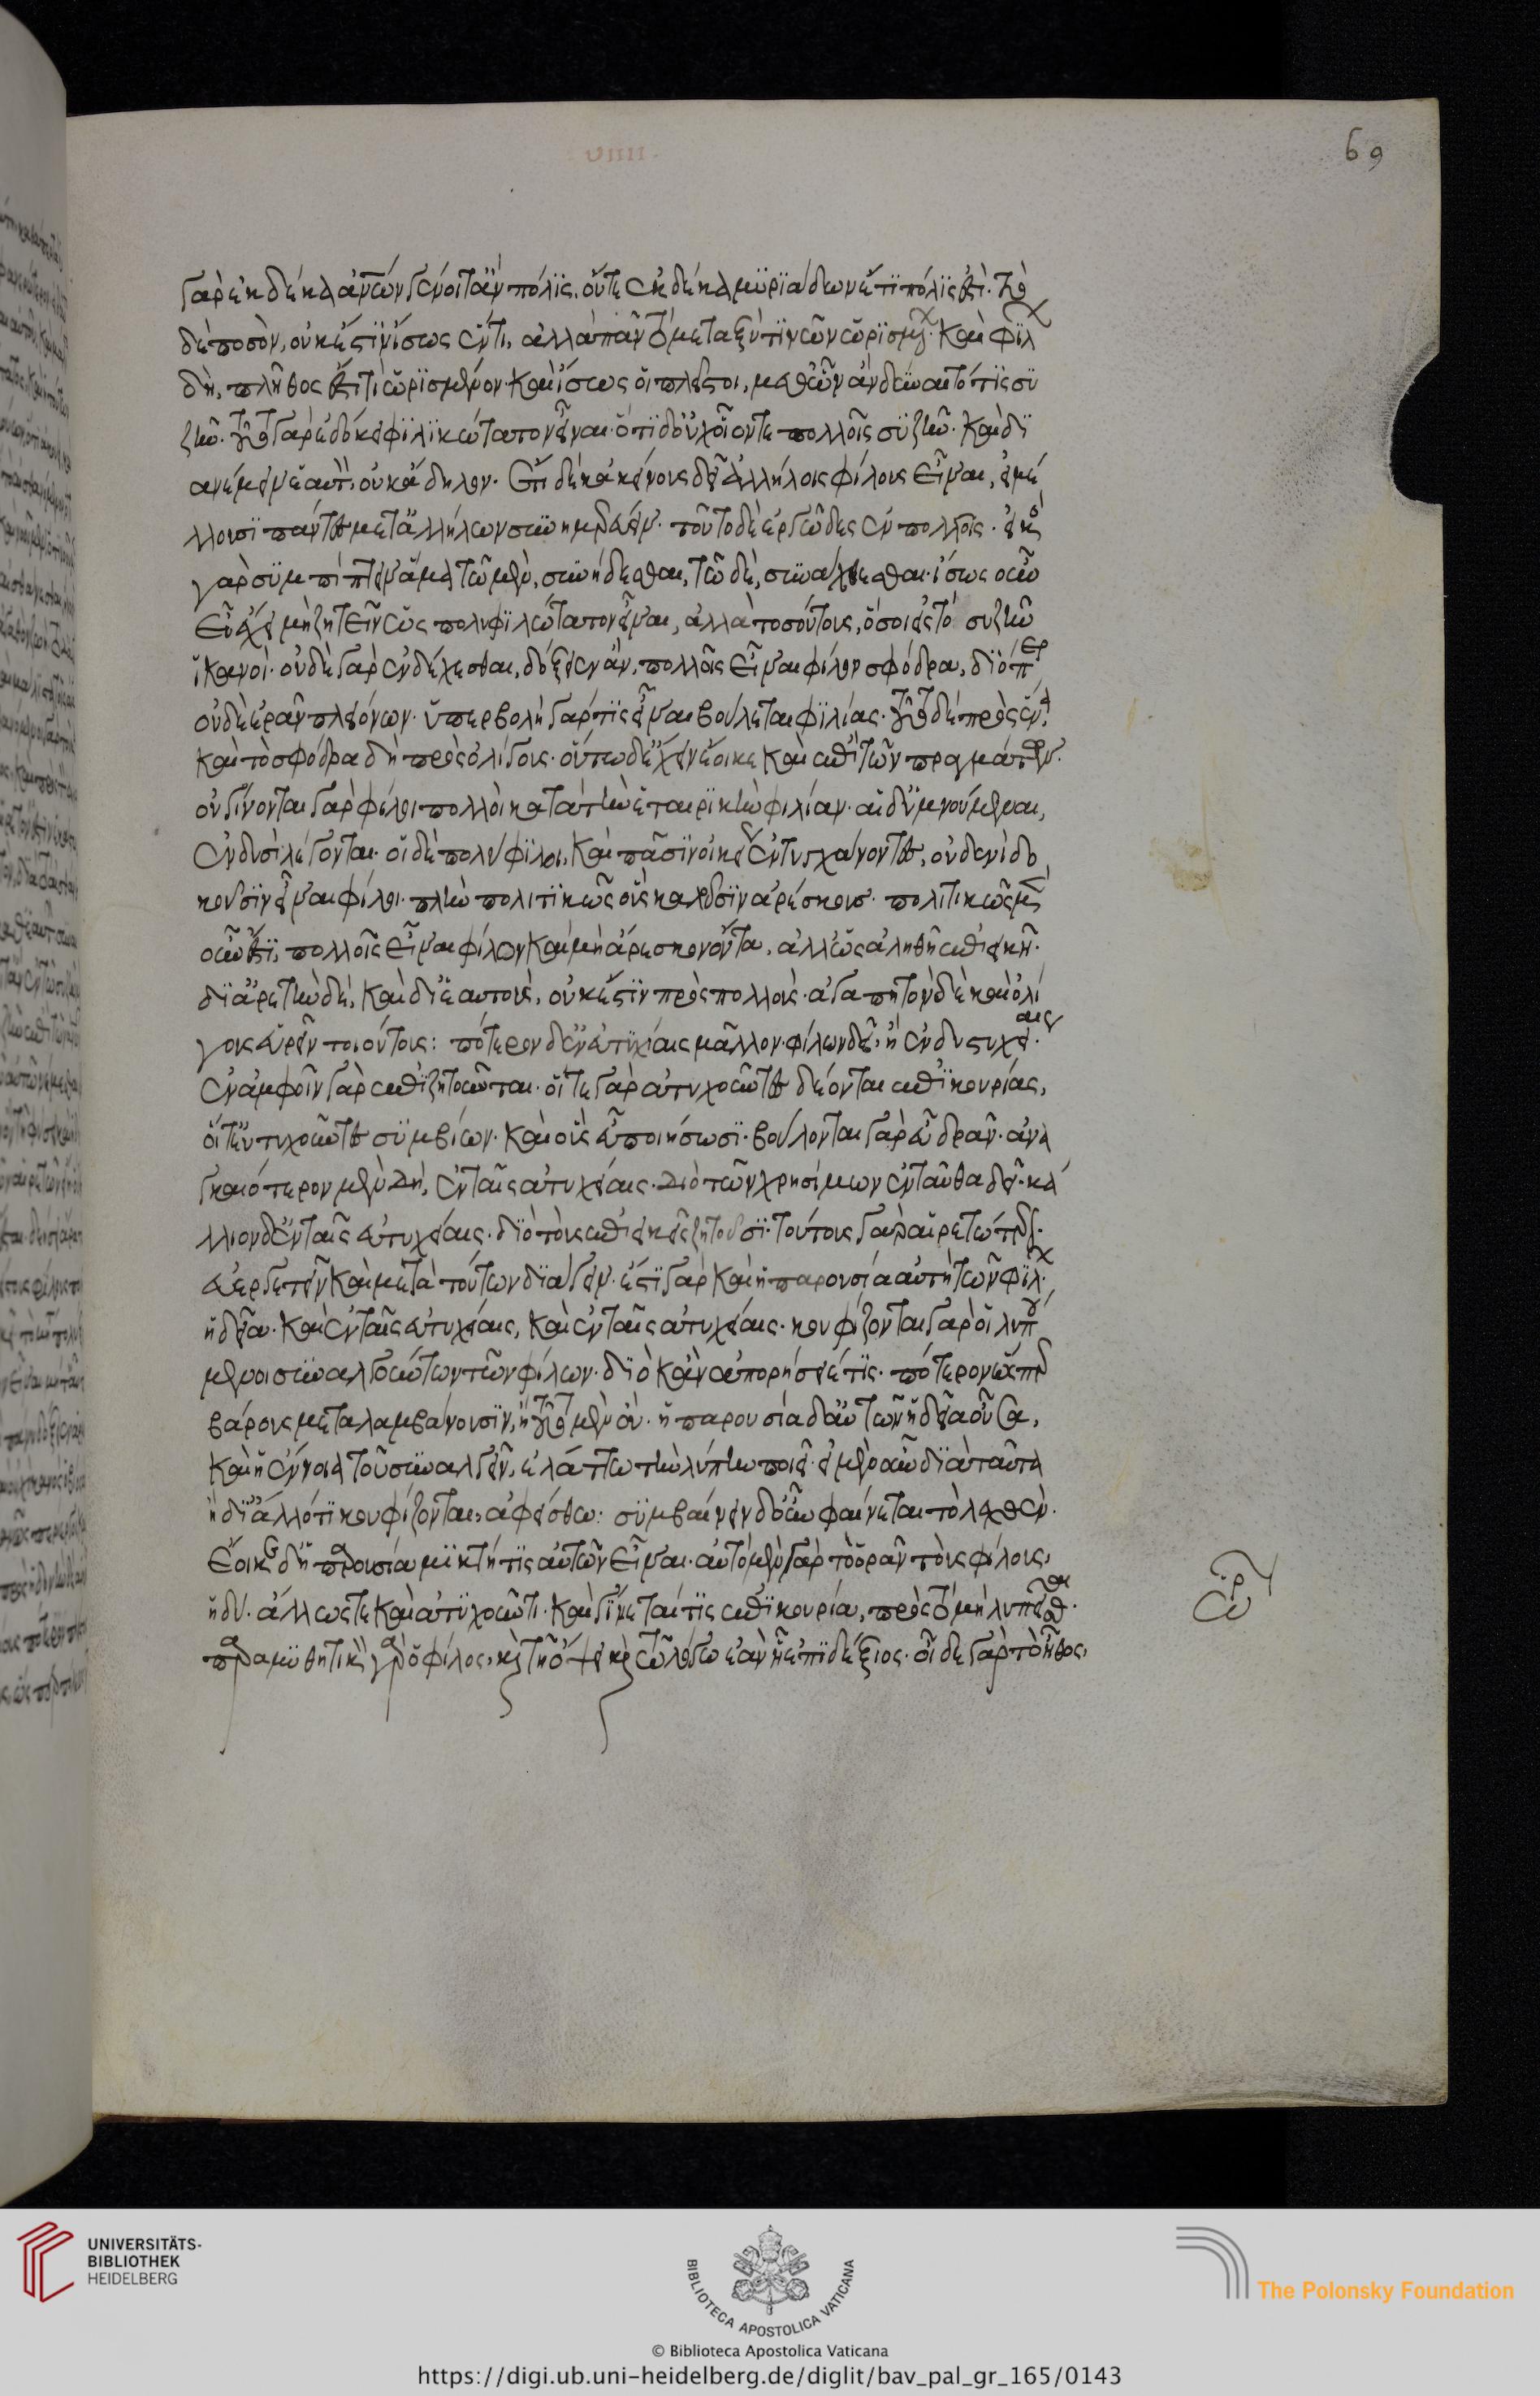 VIIII
69
γὰρ ἐκ δέκα ἀν̅ων γένοιτ' ἂν πόλις, οὔτε ἐκ δέκα μυριάδων ἔτι πόλις ἐστί. τὸ
δὲ ποσὸν, οὐκ ἔστιν ἴσως ἕν τι, ἀλλὰ πᾶν τὸ μεταξύ τινῶν ὡρισμέν. καὶ φίλ
δὴ, πλῆθος ἐστί τι ὡρισμένον. καὶ ἴσως οἱ πλεῖστοι, μεθ' ὧν ἂν δύναιτό τις συ
ζῆν. τοῦτο γὰρ ἐδόκει φιλικώτατον εἶναι. ὅτι δ' οὐχ οἷόν τε πολλοῖς συζῆν. καὶ δι
ανέμειν ἑαυτὸν, οὐκ ἄδηλον. ἔτι δὲ κἀκείνους δεῖ ἀλλήλοις φίλους εἶναι, εἰ μέ
λλουσι πάντες μετ' ἀλλήλων συνημερεύειν. τοῦτο δὲ ἐργῶδες ἐν πολλοῖς. εἰκὸς
γὰρ συμπίπτειν ἅμα τῶ μὲν, συνήδεσθαι, τῶ δὲ, συνάχθεσθαι. ἴσως οὖν
εὖ ἔχει μὴ ζητεῖν ὡς πολυφιλώτατον εἶναι, ἀλλὰ τοσούτους, ὅσοι εἰς τὸ συζῆν
ἱκανοί. οὐδὲ γὰρ ἐνδέχεσθαι, δόξειεν ἂν, πολλοῖς εἶναι φίλον σφόδρα, διόπερ
οὐδὲ ἐρᾶν πλειόνων. ὑπερβολὴ γάρ τις εἶναι βούλεται φιλίας. τοῦτο δὲ πρὸς ἕνα
καὶ τὸ σφόδρα δὴ πρὸς ὀλίγους. οὕτω δ' ἔχειν ἔοικε καὶ ἐπὶ τῶν πραγμάτων.
οὐ γίνονται γὰρ φίλοι πολλοὶ κατὰ τὴν ἑταιρικὴν φιλίαν. αἱ δ' ὑμνούμεναι,
ἐν δυσὶ λέγονται. οἱ δὲ πολύφιλοι, καὶ πᾶσιν οἰκείως ἐντυγχάνοντες, οὐδενὶ δο
κοῦσιν εἶναι φίλοι. πλὴν πολιτικῶς οὓς καλοῦσιν ἀρέσκους. πολιτικῶς μὲν
οὖν ἐστι, πολλοῖς εἶναι φίλον καὶ μὴ ἄρεσκον ὄντα, ἀλλ' ὡς ἀληθῆ ἐπιεικῆ.
δι' ἀρετὴν δὲ, καὶ δι' ἑαυτοὺς, οὐκ ἔστιν πρὸς πολλούς. ἀγαπητὸν δὲ καὶ ὀλί
γους εὑρεῖν τοιούτους: πότερον δ' ἐν εὐτυχίαις μᾶλλον. φίλων δεῖ, ἢ ἐν δυστυχείαις.
ἐν ἀμφοῖν γὰρ ἐπιζητοῦνται. οἵ τε γὰρ ἀτυχοῦντες δέονται ἐπικουρίας,
οἵ τ' εὐτυχοῦντες συμβίων. καὶ οὓς εὖ ποιήσωσι. βούλονται γὰρ εὖ δρᾶν. ἀνα
γκαιότερον μὲν δὴ, ἐν ταῖς ἀτυχείαις. διὸ τῶν χρησίμων ἐνταῦθα δεῖ. κά
λλιον δ' ἐν ταῖς εὐτυχείαις. διὸ τοὺς ἐπιεικεῖς ζητοῦσι. τούτους γὰρ αἱρετώτερον
εὐεργετεῖν καὶ μετὰ τούτων διάγειν. ἔστι γὰρ καὶ ἡ παρουσία αὐτὴ τῶν φίλ.
ἡδεῖα. καὶ ἐν ταῖς εὐτυχείαις, καὶ ἐν ταῖς ἀτυχείαις. κουφίζονται γὰρ οἱ λυπού
μενοι συναλγούντων τῶν φίλων. διὸ κἂν ἀπορήσειέ τις. πότερον ὥσπερ
βάρους μεταλαμβάνουσιν, ἢ τοῦτο μὲν οὔ. ἡ παρουσία δ' αὐτῶν ἡδεῖα οὖσα,
καὶ ἡ ἔννοια τοῦ συναλγεῖν, ἐλάττω τὴν λύπην ποιεῖ. εἰ μὲν οὖν διὰ ταῦτα
ἢ δι' ἄλλό τι κουφίζονται, ἀφείσθω: συμβαίνειν δ' οὖν φαίνεται τὸ λεχθέν.
ἔοικε δ' ἡ παρουσία μικτή τις αὐτῶν εἶναι. αὐτὸ μὲν γὰρ τὸ ὁρᾶν τοὺς φίλους,
ἡδύ. ἄλλως τε καὶ ἀτυχοῦντι. καὶ γίνεταί τις ἐπικουρία, πρὸς τὸ μὴ λυπεῖσθαι.
παραμυθητικὸν γὰρ ὁ φίλος, καὶ τῇ ὄψει καὶ τῶ λόγω ἐὰν ᾖ ἐπιδέξιος. οἶδε γὰρ τὸ ἦθος,
UNIVERSITÄTS-
BIBLIOTHEK
HEIDELBERG
BIBLIOTECA APOSTOLICA VATICANA
The Polonsky Foundation
© Biblioteca Apostolica Vaticana
https://digi.ub.uni-heidelberg.de/diglit/bav_pal_gr_165/0143